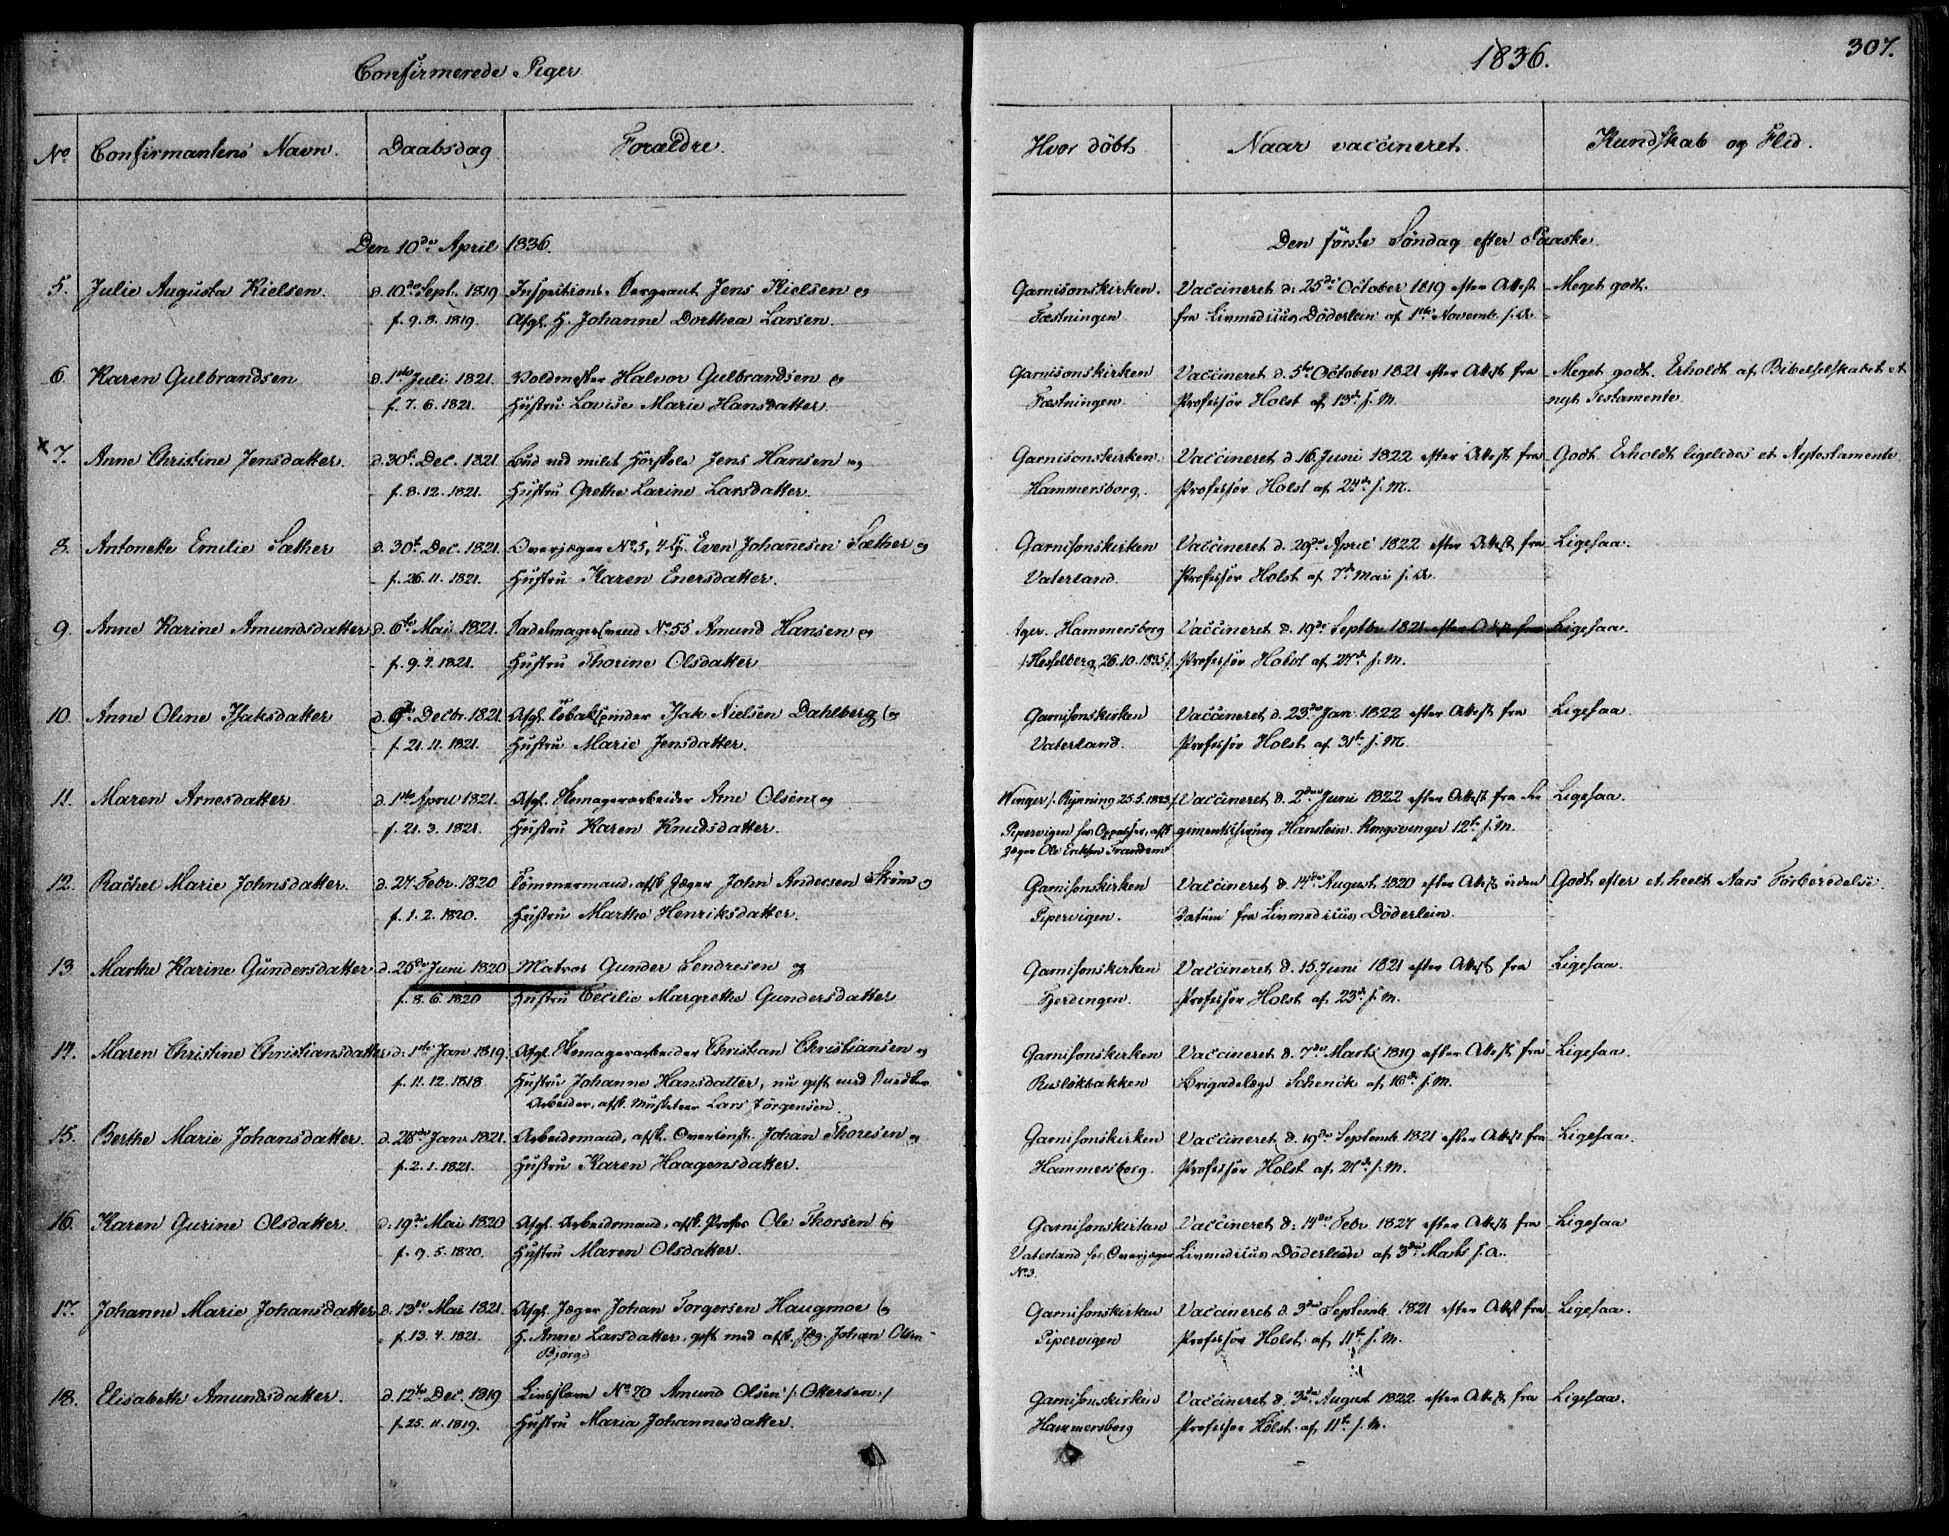 Confirmerede Piger
1836.
307.
No Confirmantens Navn. Daabsdag Forældre. Hvor döbt. Naar vaccineret. Kundskab og Flid.
Den 10de April 1836. Den förste Söndag efter Paaske.
5. Julie Augusta Kielsen. d. 10de Sept. 1819 Inspections-Sergeant Jens Kielsen og Garnisonskirken. Vaccineret d: 25de October 1819 efter Attest Meget godt.
f. 9. 8. 1819. Afgl. H. Johanne Dorthea Larsen. Fæstningen fra Livmedicus Döderlein af 1ste Novemb. s. A.
6. Karen Gulbrandsen d. 1ste Juli 1821. Voldmester Halvor Gulbrandsen og Garnisonskirken Vaccineret d. 5te October 1821 efter Attest fra Meget godt. Erholdt af Bibelselskabet et
f. 7. 6. 1821. Hustru Lovise Marie Hansdatter. Fæstningen Professor Holst af 13de s. M. nyt Testamente.
x 7. Anne Christine Jensdatter. d. 30te Dec. 1821 Bud ved milit Höiskole Jens Hansen og Garnisonskirken. Vaccineret d 16 Juni 1822 efter Attest fra Godt. Erholdt ligeledes et Nytestamente
f. 8. 12. 1821. Hustru Grethe Larine Larsdatter Hammersborg. Professor Holst af 24de s. M.
8. Antonette Emilie Sæther d. 30te Dec. 1821. Overjæger No 5, 4 Cp. Even Johannesen Sæther og Garnisonskirken Vaccineret d. 29de April 1822 efter Attest fra Ligesaa.
f. 26. 11. 1821. Hustru Karen Enersdatter. Vaterland. Professor Holst af 7de Mai s. A.
9. Anne Karine Amundsdatter d. 6te Mai 1821. Sadelmagersvend No 55 Amund Hansen og Ager. Hammersborg Vaccineret d. 19de Septbr 1821 efter Attest fra Ligesaa.
f. 9. 4. 1821. Hustru Thorine Olsdatter /: Hesselberg 26. 10. 1835 :/ Professor Holst af 27de s. M.
10. Anne Oline Isaksdatter d. 9de Decbr. 1821. Afgl. Tobakspinder Isak Nielsen Dahlberg og Garnisonskirken Vaccineret d. 23de Jan 1822 efter Attest fra Ligesaa.
f. 21. 11. 1821. Hustru Marie Jensdatter. Vaterland. Professor Holst af 31te s. M.
11. Maren Arnesdatter d. 1ste April 1821. Afgl. Skomagerarbeider Arne Olsen og Winger /: Rynning 25. 5. 1823 :/ Vaccineret d. 2den Juni 1822 efter Attest fra Re Ligesaa.
f. 21. 3. 1821. Hustru Karen Knudsdatter. Pipervigen hos afsk gimentschirurg Hanstein. Kongsvinger 12te s. M.
Jæger Ole Eriksen
12. Rachel Marie Johnsdatter. d. 27 Febr. 1820 Tömmermand, afsk. Jæger John Andersen Ström og Garnisonskirken Vaccineret d. 14de August 1820 efter Attest uden Godt efter et heelt Aars Forberedelse.
f. 1. 2. 1820. Hustru Marthe Henriksdatter. Pipervigen. Datum fra Livmedicus Döderlein.
13 Marthe Karine Gundersdatter d. 25de Juni 1820 Matros Gunder Sendresen og Garnisonskirken Vaccineret d. 15 Juni 1821 efter Attest fra Ligesaa.
f. 8. 6. 1820 Hustru Cecilie Margrethe Gundersdatter Fjerdingen. Professor Holst af 23de s. M.
14. Maren Christine Christiansdatter d. 1ste Jan 1819. Afgl. Skomagerarbeider Christian Christiansen og Garnisonskirken Vaccineret d. 7de Marts 1819 efter Attest fra Ligesaa.
f. 11. 12. 1818. Hustru Johanne Hansdatter, nu gift med Ruslökbakken Brigadelæge Schenck af 16de s. M.
Arbeider, afsk. Musketeer Lars Jörgensen.
15. Berthe Marie Johansdatter. d. 28de Janr 1821. Arbeidsmand, afsk. Johan Thoresen og Garnisonskirken Vaccineret d. 19de Septemb. 1821 efter Attest fra Ligesaa.
f. 2. 1. 1821. Hustru Karen Haagensdatter. Hammersborg. Professor Holst af 27de s. M.
16. Karen Gurine Olsdatter. d. 19de Mai 1820 Afgl. Arbeidsmand, afsk. Profos Ole Thorsen og Garnisonskirken Vaccineret d: 14de Febr. 1827 efter Attest fra Ligesaa
f. 9. 5. 1820. Hustru Maren Olsdatter. Vaterland hos Overjæger Livmedicus Döderlein af 3de Marts s. A.
No 3.
17. Johanne Marie Johansdatter d. 13de Mai 1821. Afgl. Jæger Johan Torgersen Haugmoe og Garnisonskirken Vaccineret d. 3die Septemb. 1821 efter Attest fra Ligesaa.
f. 13. 4. 1821. H. Anne Larsdatter, gift med afsk. Jæg. Johan Olsen Pipervigen Professor Holst af 11te s. M.
Bjørge
18. Elisabeth Amundsdatter. d. 12te Dec. 1819 Livslave No 20 Amund Olsen /: Ottersen :/ Garnisonskirken Vaccineret d. 3die August 1822 efter Attest fra Ligesaa.
f. 25. 11. 1819. Hustru Maria Johannesdatter. Hammersborg Professor Holst af 11te s. M.